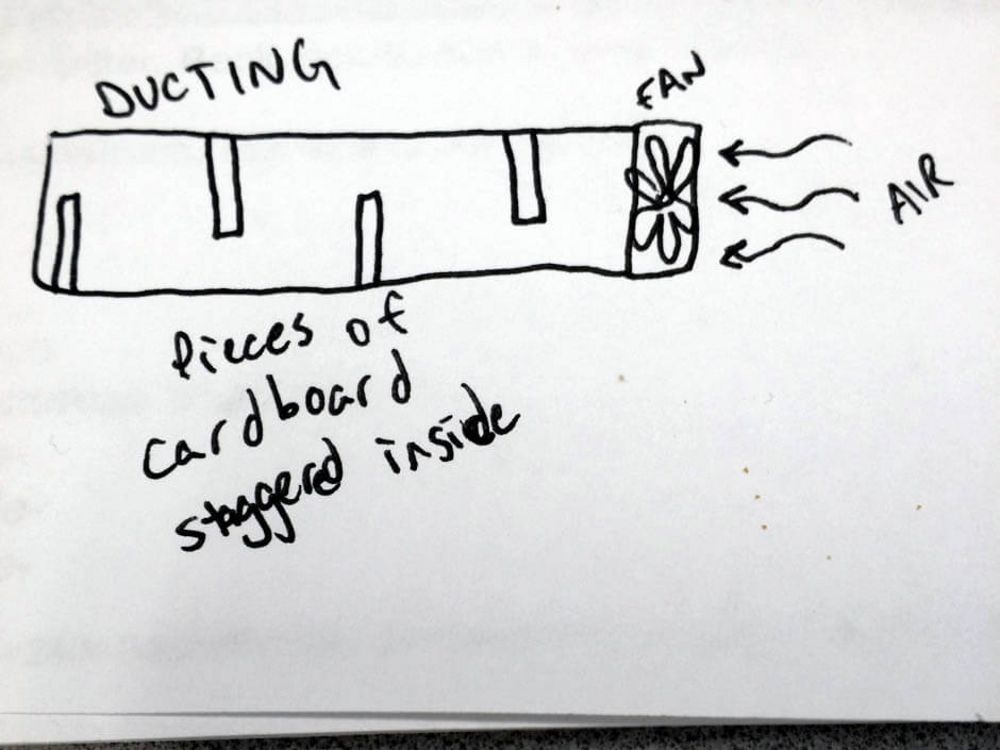 DUCTING
FAN
AIR
Pieces of
cardboard
staggerd inside